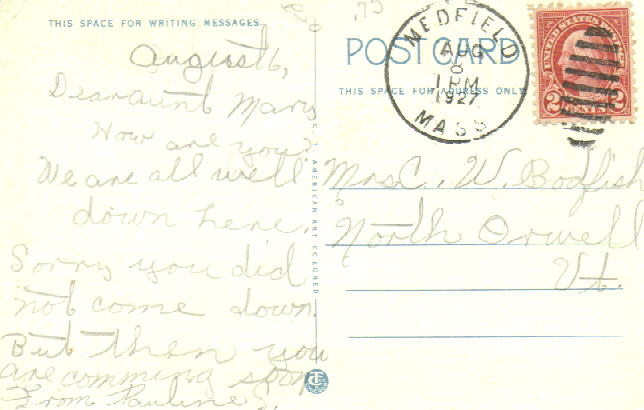 THIS SPACE FOR WRITING MESSAGES
August 6,
Dear aunt Mary
How are you?
We are all well
down here.
Sorry you did
not come down.
But then you
are comming soon
From Pauline S.
C. T. AMERICAN ART COLORED
.75
POST CARD
THIS SPACE FOR ADDRESS ONLY
MEDFIELD
AUG
8
1 PM
1927
MASS
UNITED STATES POSTAGE
2 CENTS 2
Mrs C. W. Bodfish
North Orwell
Vt.